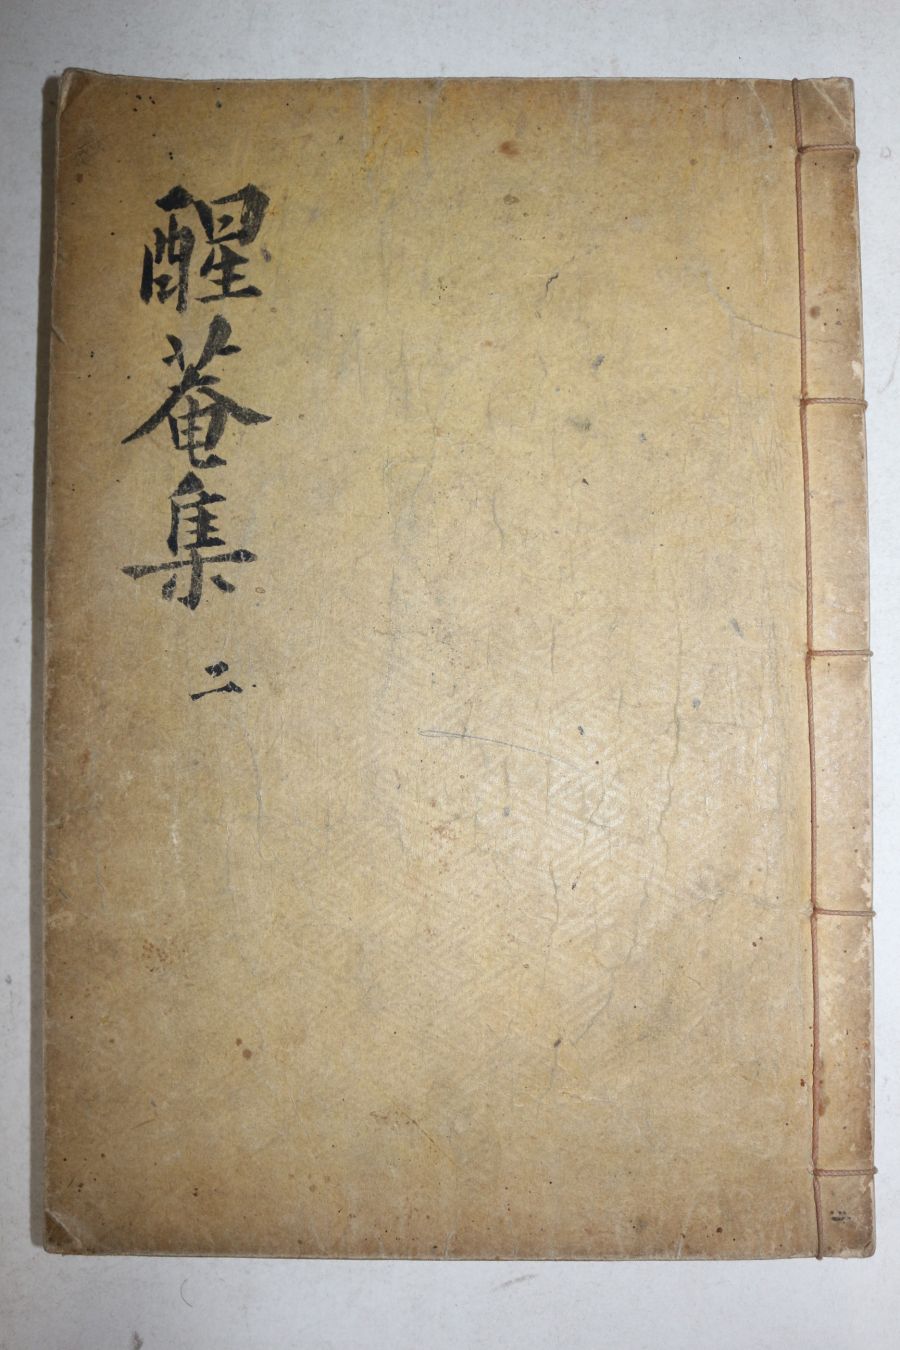 醒菴集
二